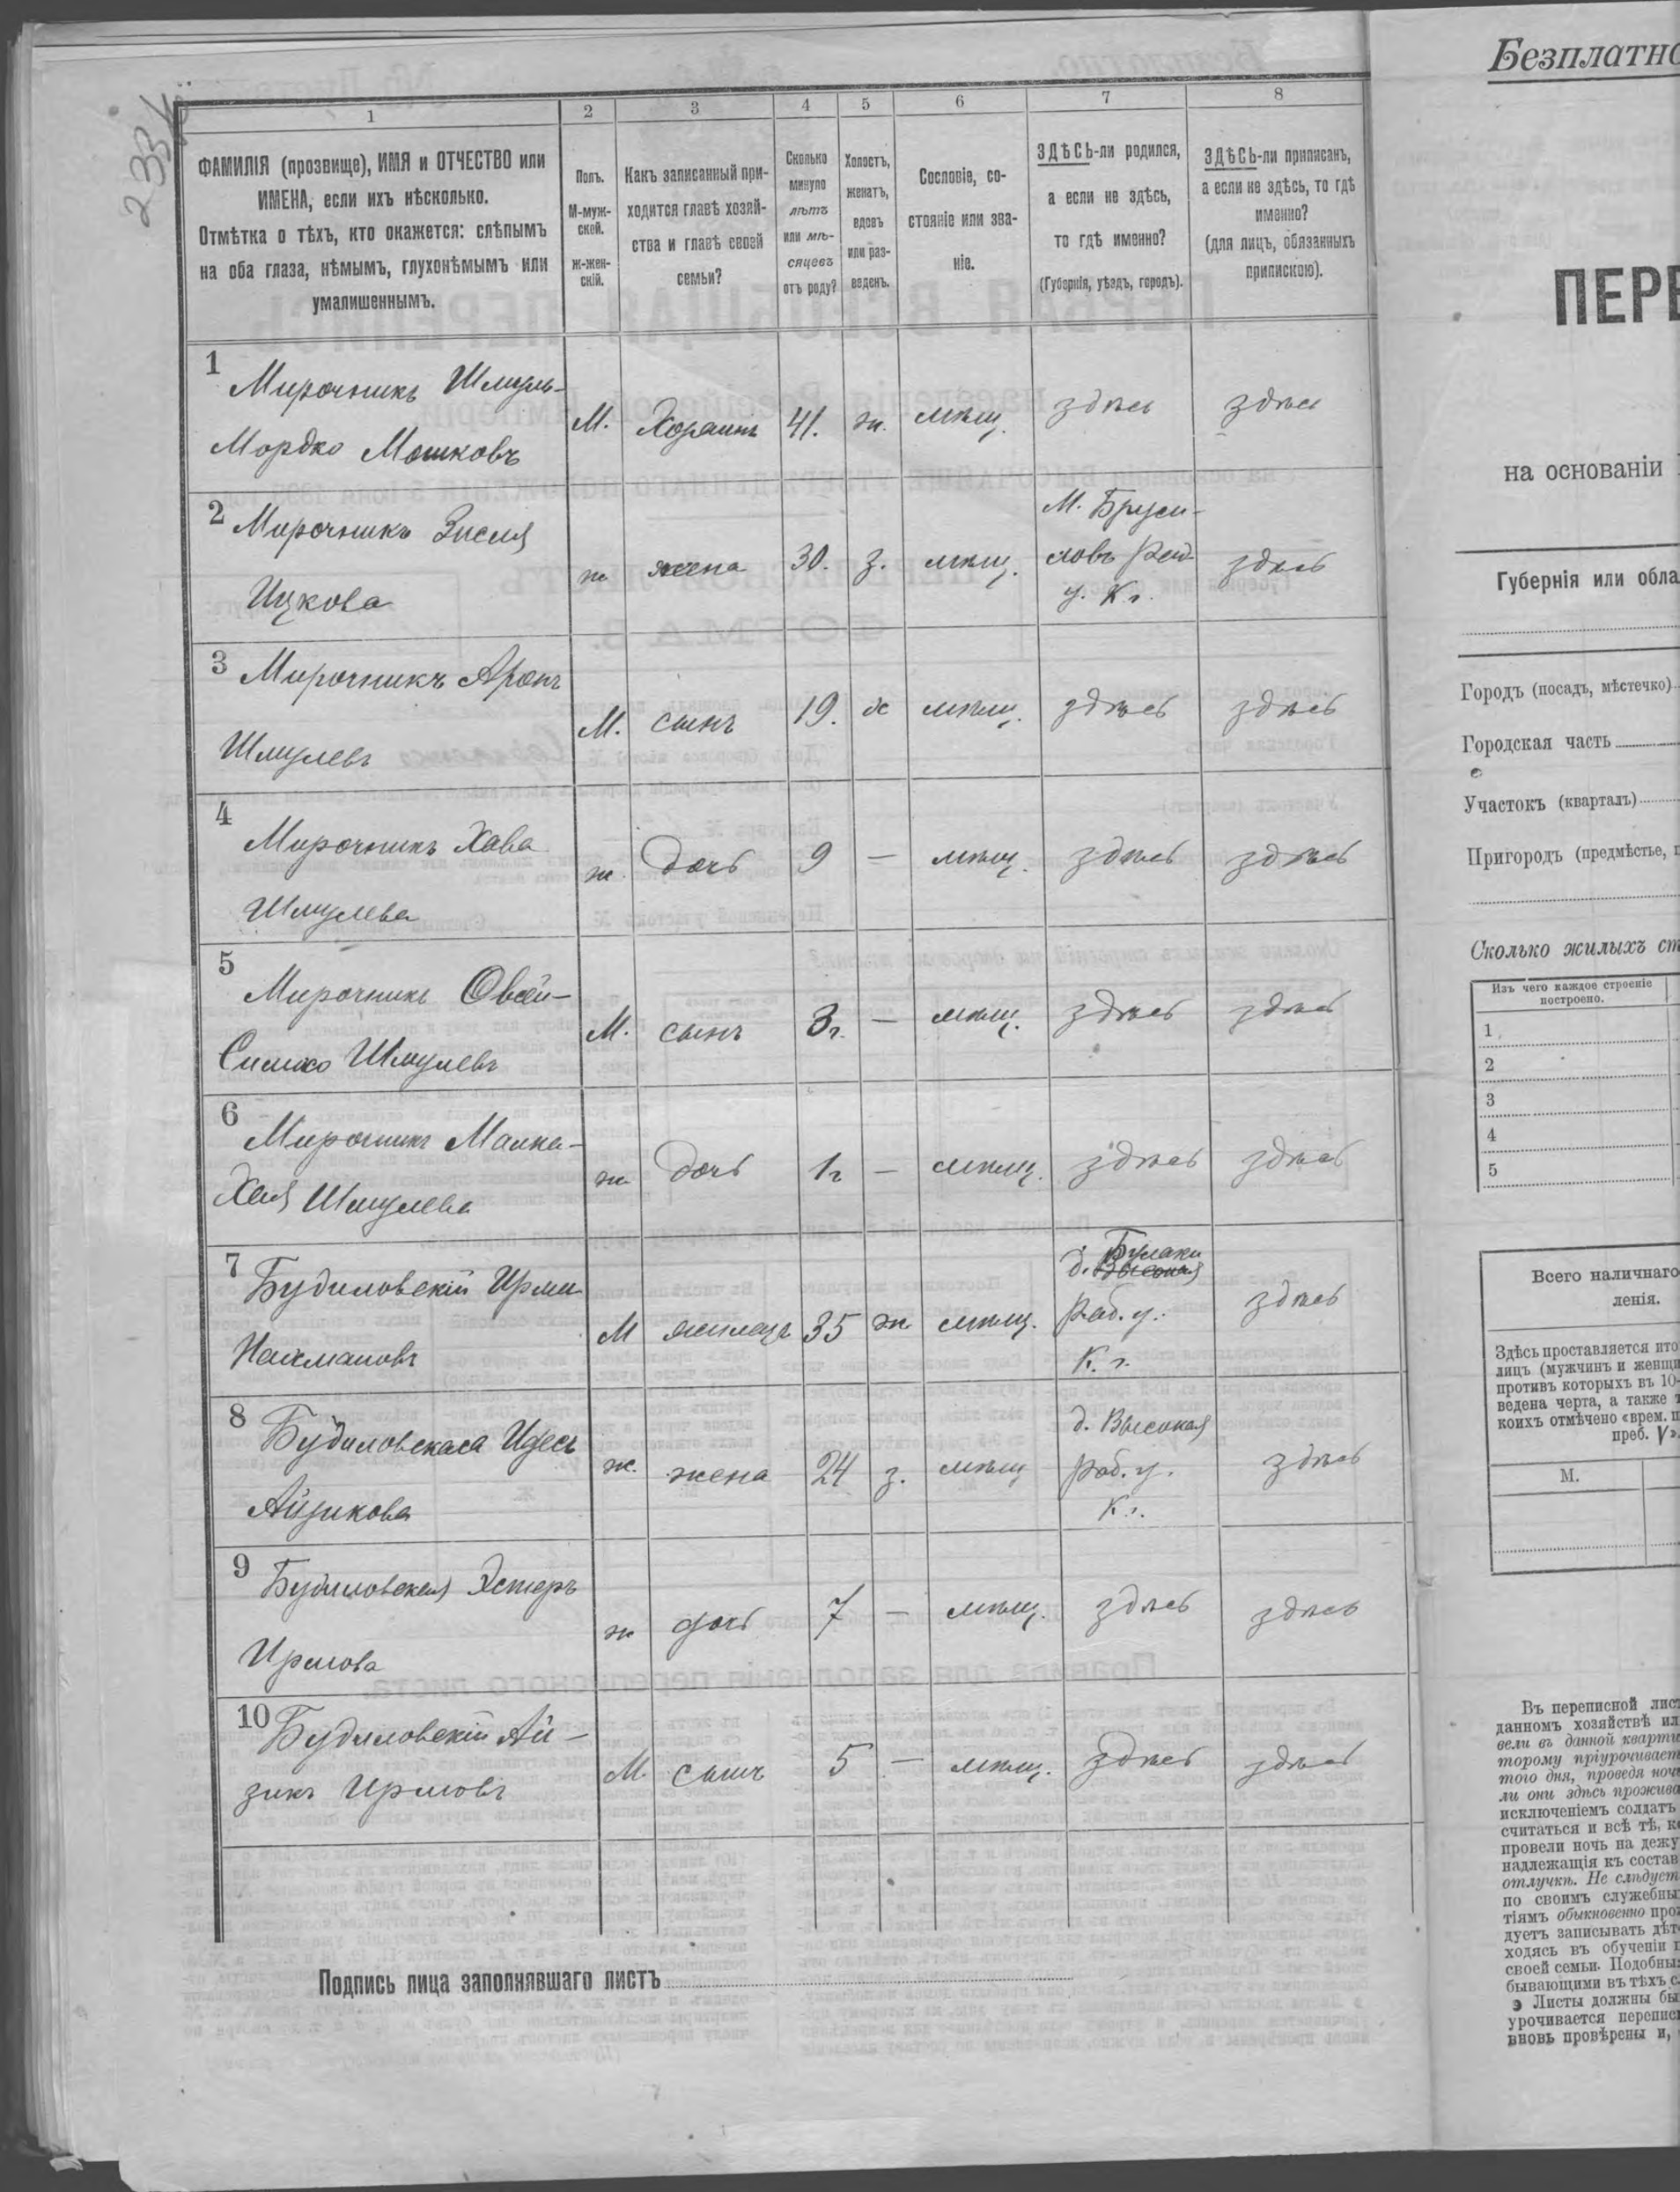 233
1 2 3 4 5 6 7 8
ФАМИЛІЯ (прозвище), ИМЯ и ОТЧЕСТВО или
ИМЕНА, если ихъ нѣсколько.
Отмѣтка о тѣхъ, кто окажется: слѣпымъ
на оба глаза, нѣмымъ, глухонѣмымъ или
умалишеннымъ.
Полъ.
М-муж-
ской.
ж-жен-
скій.
Какъ записанный при-
ходится главѣ хозяй-
ства и главѣ своей
семьи?
Сколько
минуло
лѣтъ
или мѣ-
сяцевъ
отъ роду?
Холостъ,
женатъ,
вдовъ
или раз-
веденъ.
Сословіе, со-
стояніе или зва-
ніе.
ЗДѢСЬ-ли родился,
а если не здѣсь,
то гдѣ именно?
(Губернія, уѣздъ, городъ).
ЗДѢСЬ-ли приписанъ,
а если не здѣсь, то гдѣ
именно?
(для лицъ, обязанныхъ
припискою).
1
Мирочникъ Шмуль-
Мордко Мошковъ
М. Хозяинъ 41. ж. мѣщ. здѣсь здѣсь
2
Мирочникъ Зисля
Ицкова
ж жена 30. з. мѣщ.
М. Бруси-
ловъ Рад.
у. К. г.
здѣсь
3
Мирочникъ Аронъ
Шмулевъ
М. сынъ 19. х мѣщ. здѣсь здѣсь
4
Мирочникъ Хава
Шмулева
ж. дочь 9 — мѣщ. здѣсь здѣсь
5
Мирочникъ Овсей-
Симхо Шмулевъ
М. сынъ 3 г. — мѣщ. здѣсь здѣсь
6
Мирочникъ Малка-
Хая Шмулева
ж дочь 1 г — мѣщ. здѣсь здѣсь
7
Будиловскій Ирми
Нахмановъ
М жилецъ 35 ж. мѣщ.
Булаки
д. Высокая
Рад. у.
К. г.
здѣсь
8
Будиловская Идесъ
Айзикова
ж. жена 24 з. мѣщ
д. Высокая
Рад. у.
К. г.
здѣсь
9
Будиловская Эстеръ
Ирмова
ж дочь 7 — мѣщ. здѣсь здѣсь
10
Будиловскій Ай-
зикъ Ирмовъ
М. сынъ 5 — мѣщ. здѣсь здѣсь
Подпись лица заполнявшаго листъ
Безплатно
ПЕРЕ
на основаніи
Губернія или обла
Городъ (посадъ, мѣстечко)
Городская часть
Участокъ (кварталъ)
Пригородъ (предмѣстье,
Сколько жилыхъ ст
Изъ чего каждое строеніе
построено.
1
2
3
4
5
Всего наличнаго
ленія.
Здѣсь проставляется ито
лицъ (мужчинъ и женщи
противъ которыхъ въ 10-
ведена черта, а также
коихъ отмѣчено «врем. п
преб. V».
М.
Въ переписной лист
данномъ хозяйствѣ ил
вели въ данной кварти
торому пріурочивает
того дня, проведя ноч
ли они здѣсь прожива
исключеніемъ солдатъ
считаться и всѣ тѣ, к
провели ночь на дежу
надлежащія къ состав
отлучкѣ. Не слѣдует
по своимъ служебны
тіямъ обыкновенно про
дуетъ записывать дѣт
ходясь въ обученіи
своей семьи. Подобны
бывающими въ тѣхъ с
Листы должны бы
урочивается перепис
вновь провѣрены и,